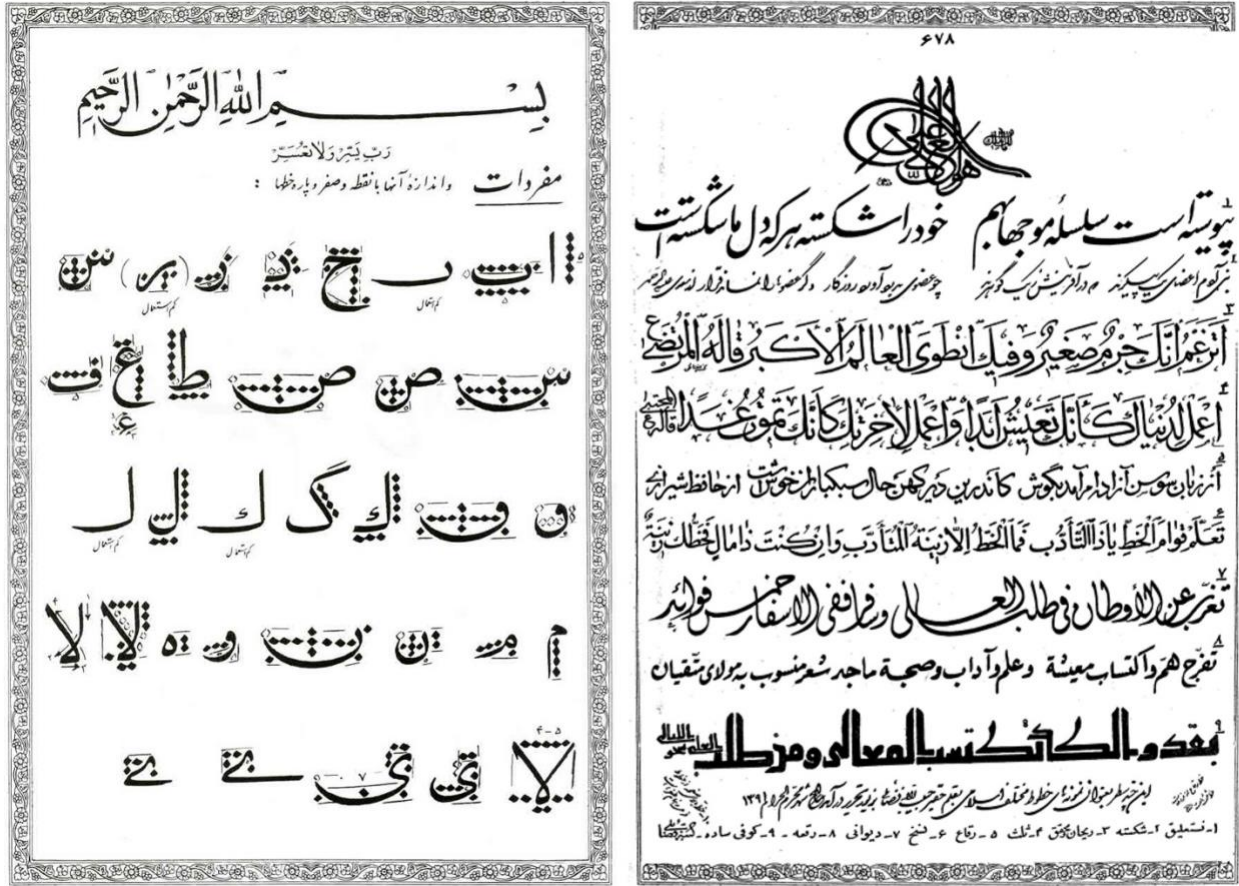 بِسْمِ اللهِ الرَّحْمٰنِ الرَّحِيمِ
رَبِّ يَسِّرْ وَلَا تُعَسِّرْ
مفردات و اندازهٔ آنها با نقطه و صفر و پاره خطها :
ا ب ں ج د ر (ر) س
کم استعمال کم استعمال
س ص ص ط ع ف
ع
و ف ك گ ك ل ل
کم استعمال کم استعمال
م م ن ب ه و لا لا
۴-۵
لا ی ی ے ے
۶۷۸
هو العلی
پیوسته است سلسلهٔ موجها بهم خود را شکسته هر که دل ما شکسته است
بنی آدم اعضای یک پیکرند که در آفرینش ز یک گوهرند چو عضوی بدرد آورد روزگار دگر عضوها را نماند قرار
أَتَزْعَمُ أَنَّكَ جِرْمٌ صَغِيرٌ وَفِيكَ انْطَوَى الْعَالَمُ الْأَكْبَرُ قَالَهُ الْمُرْتَضَى
اِعْمَلْ لِدُنْيَاكَ كَأَنَّكَ تَعِيشُ أَبَدًا وَاعْمَلْ لِآخِرَتِكَ كَأَنَّكَ تَمُوتُ غَدًا قاله المجتبى
از زبان سوسن آزاده ام آمد بگوش کاندرین دیر کهن حال سبکباران خوشست از حافظ شیرازی
تَعَلَّمْ قِوَامَ الْخَطِّ يَا ذَا التَّأَدُّبِ فَمَا الْخَطُّ إِلَّا زِينَةُ الْمُتَأَدِّبِ وَإِنْ كُنْتَ ذَا مَالٍ فَخَطُّكَ زِينَةٌ
تغرّب عن الأوطان فی طلب العلی وسافر ففی الاسفار خمس فوائد
تفرّج هم واكتساب معیشة وعلم وآداب وصحبة ماجد شعر منسوب به مولای متقیان
بقدر الكد تكتسب المعالی ومن طلب العلی سهر اللیالی
این چند سطر بعنوان نمونه‌ای خطوط مختلف اسلامی بقلم حقیر حبیب الله فضائلی
۱- نستعلیق ۲- شکسته ۳- ریحان محقق ۴- ثلث ۵- رقاع ۶- نسخ ۷- دیوانی ۸- رقعه ۹- کوفی ساده